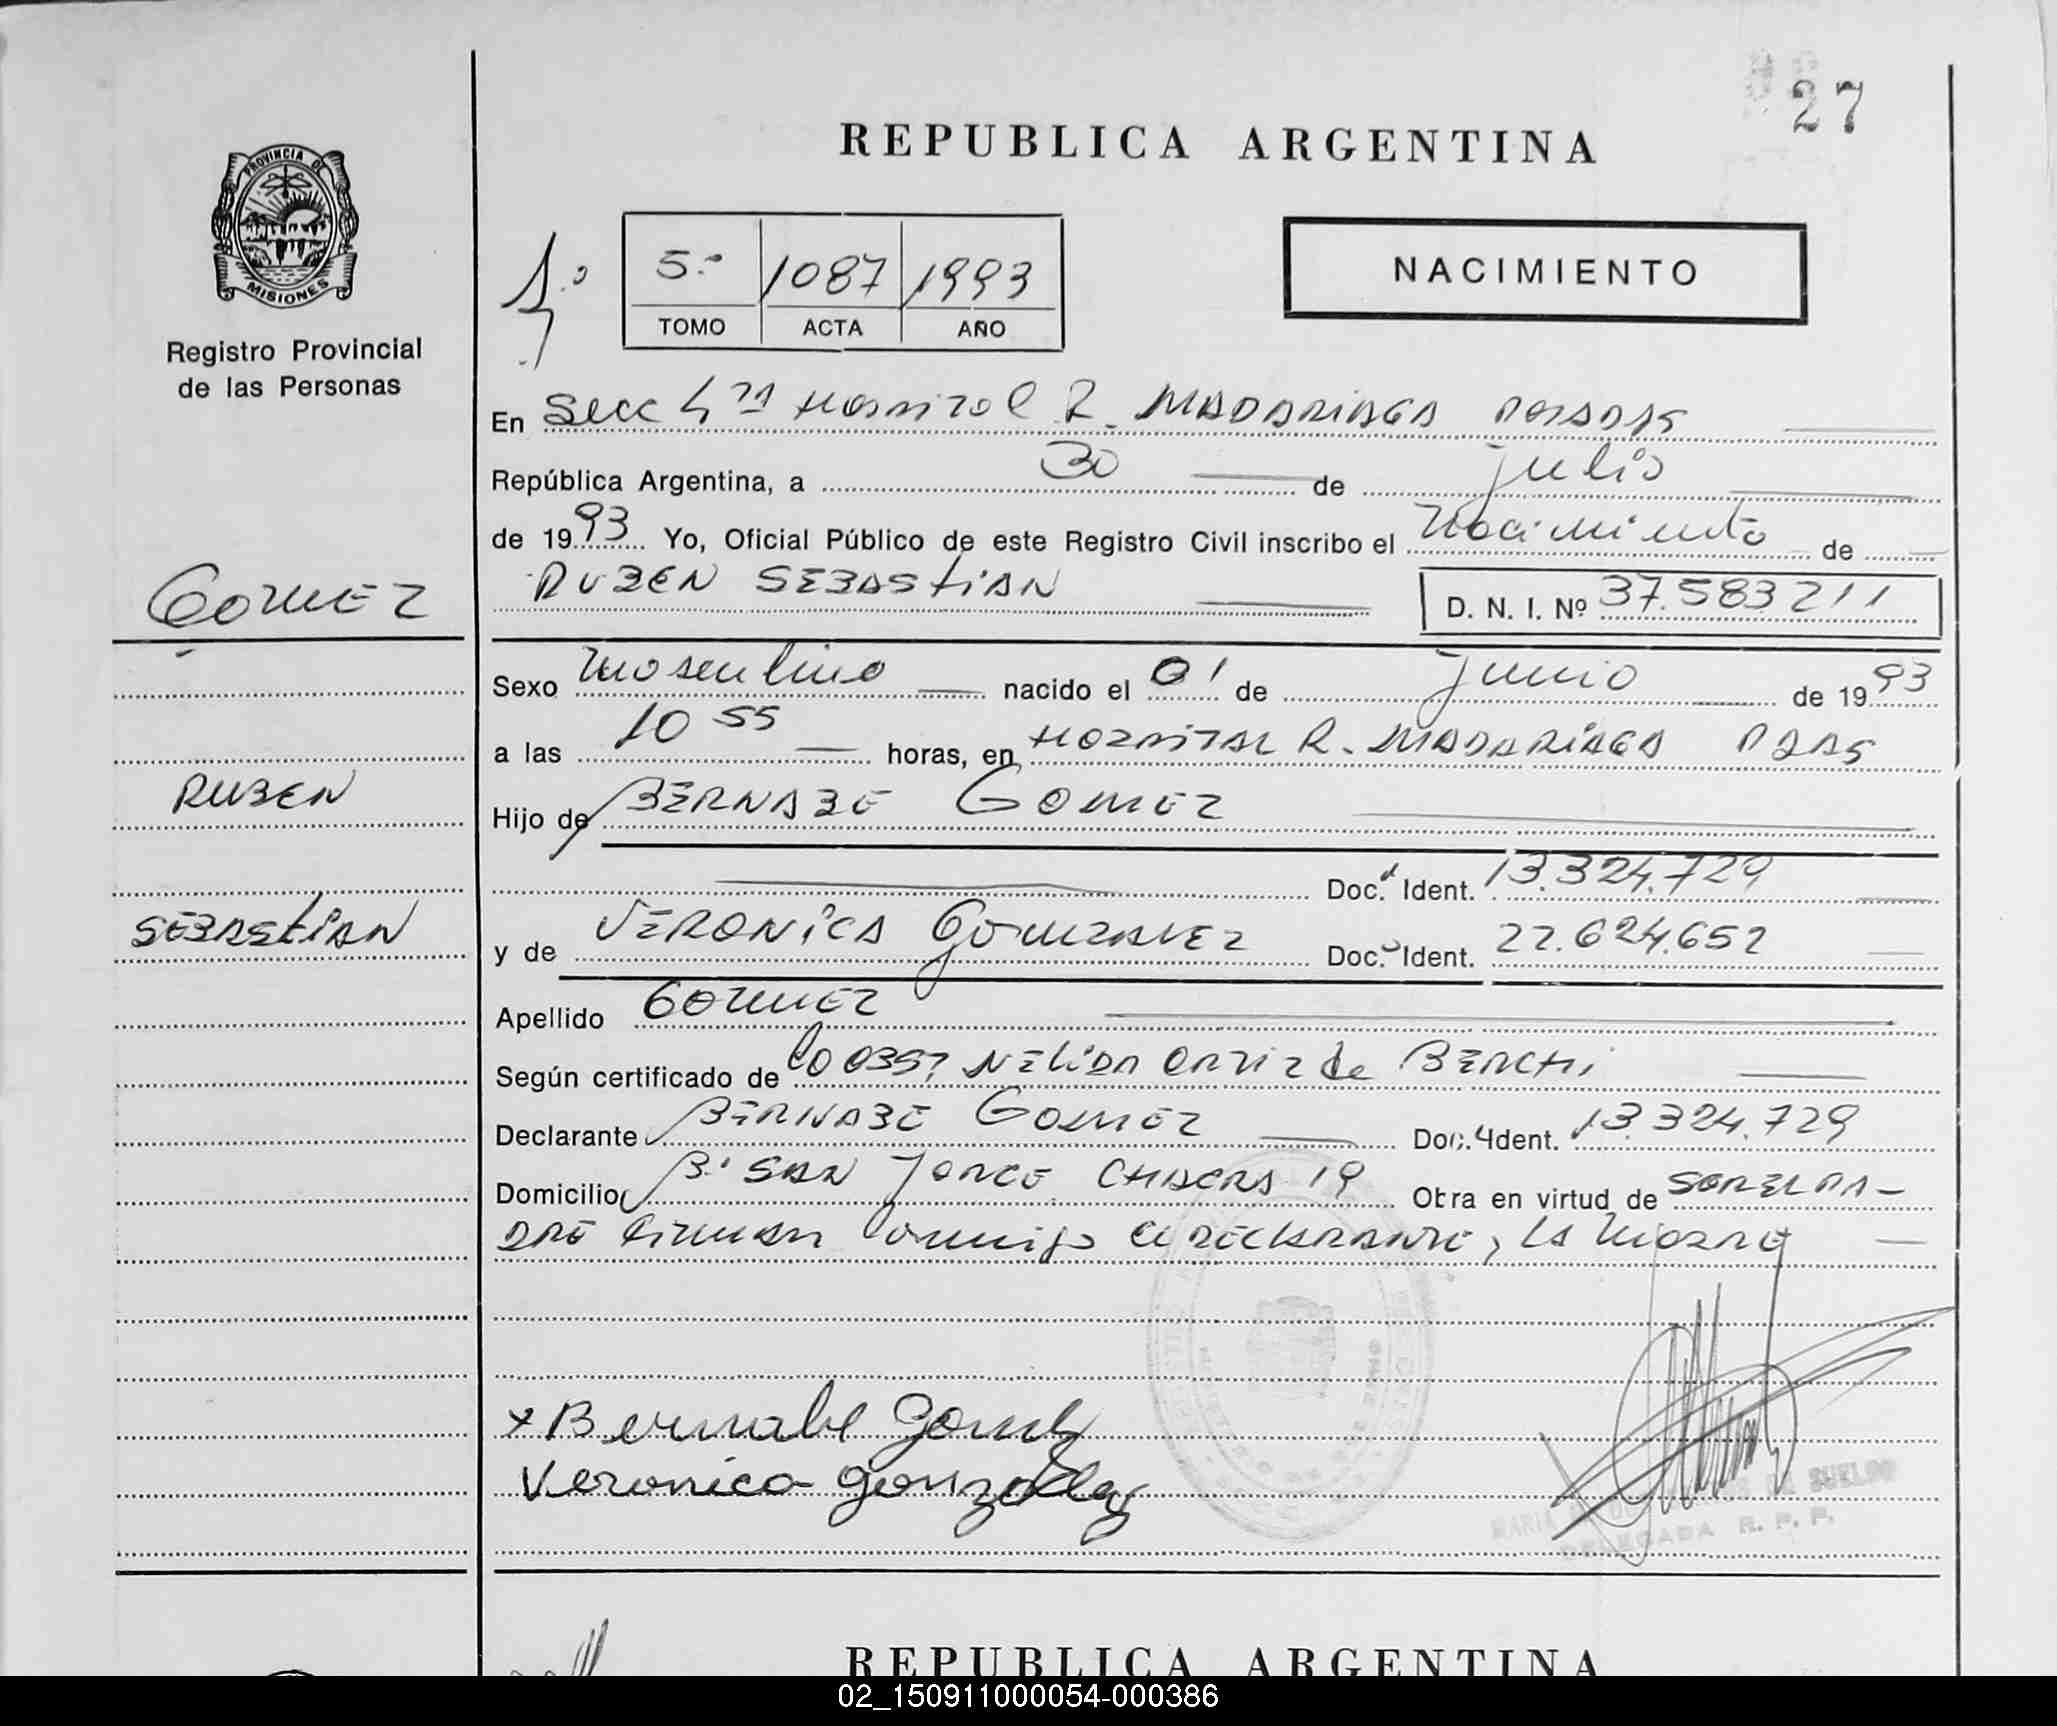 27
REPUBLICA ARGENTINA
PROVINCIA DE
MISIONES
Registro Provincial
de las Personas
1º
5º 1087 1993
TOMO ACTA AÑO
NACIMIENTO
En Secc 4ta Hospital R. MADARIAGA POSADAS
República Argentina, a 30 de julio
de 1993 Yo, Oficial Público de este Registro Civil inscribo el Nacimiento de
GOMEZ
RUBEN SEBASTIAN D. N. I. Nº 37.583 211
Sexo Masculino nacido el 01 de junio de 1993
a las 10 55 horas, en HOSPITAL R. MADARIAGA PDAS
RUBEN
Hijo de BERNABE GOMEZ
Doc. Ident. 13.324.729
SEBASTIAN
y de VERONICA GONZALEZ Doc. Ident. 22.624.652
Apellido GOMEZ
Según certificado de NELIDA ORTIZ de BERCHI
Declarante BERNABE GOMEZ Doc. Ident. 13.324.729
Domicilio Bº SAN JORGE CHACRA 19 Obra en virtud de SER EL PA-
DRE FIRMAN conmigo el DECLARANTE, LA MADRE
x Bernabe Gomez
Veronica gonzalez
MARIA DE SUELDO
DELEGADA R. P. P.
REPUBLICA ARGENTINA
02_150911000054-000386